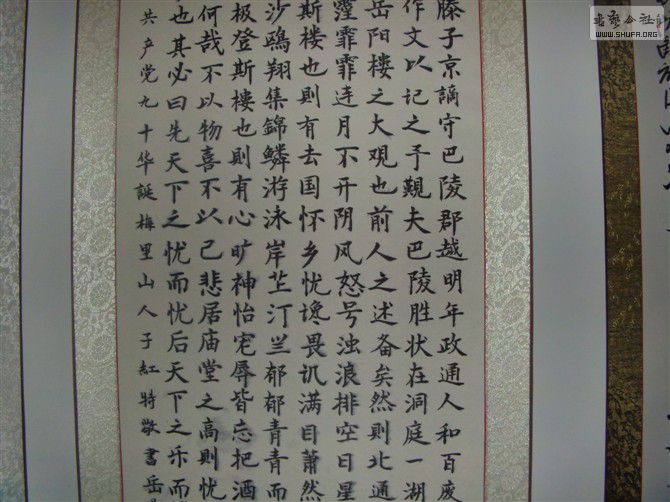 滕子京謫守巴陵郡越明年政通人和百废
作文以记之予觀夫巴陵胜状在洞庭一湖
岳阳楼之大观也前人之述备矣然则北通
霪霏霏连月不开阴风怒号浊浪排空日星
斯楼也则有去国怀乡忧谗畏讥满目萧然
沙鸥翔集錦鳞游泳岸芷汀兰郁郁青青而
极登斯楼也则有心旷神怡宠辱皆忘把酒
何哉不以物喜不以己悲居庙堂之高则忧
也其必曰先天下之忧而忧后天下之乐而
共产党九十华誕梅里山人子紅特敬書岳
書藝公社
WWW.SHUFA.ORG